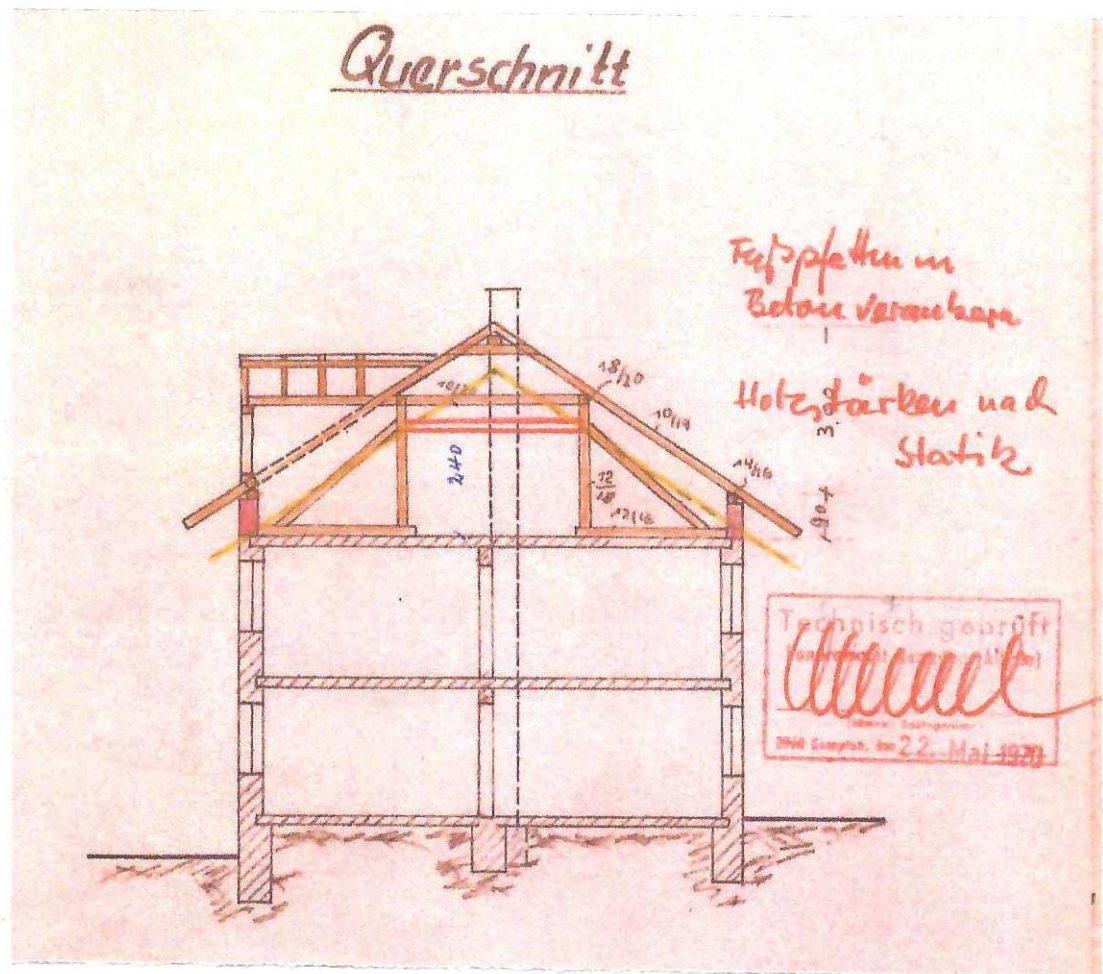 Querschnitt
Fußpfetten in
Beton verankern
Holzstärken nach
Statik
18/20
10/14
14/16
12/16
12/16
240
3.00
90
Technisch geprüft
22. Mai 1970